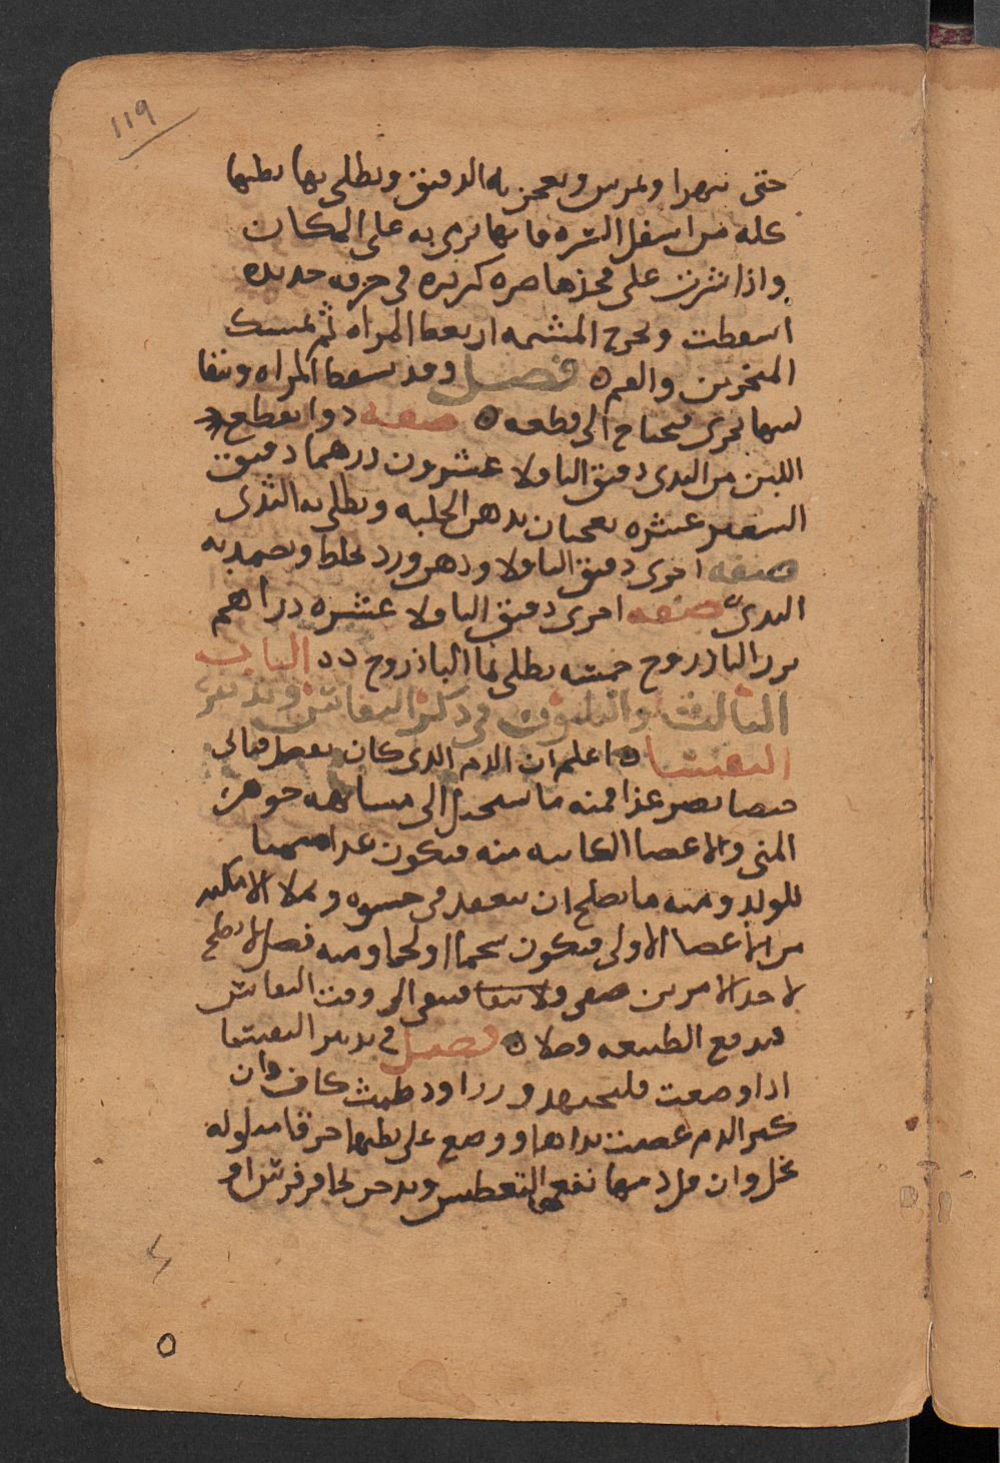 ١١٩
حتى تتهرا وتمرس ويعجن به الدقيق ويطلى بها بطنها
كله من اسفل السره فانها ترمى به على المكان
واذا نثرت على فخذها صره كزبره فى خرقه جديده
اسقطت وتخرج المشيمه ان يعطس المراه ثم تمسك
المنخرين والفم ه فصل وقد تسقط المراه ويبقا
لبنها يجرى فيحتاج الى قطعه ه صفه دوا يقطع
اللبن من الثدى دقيق الباقلا عشرون درهما دقيق
الشعير عشره يعجنان بدهن الحلبه ويطلى به الثدى
صفه اخرى دقيق الباقلا ودهن ورد يخلط ويضمد به
الثدى صفه اخرى دقيق الباقلا عشره دراهم
بزر الباذروج خمسه يطلى بما الباذروج الباب
الثالث والثلثون فى ذكر النفاس وتدبير
النفسا ه اعلم ان الدم الذى كان يفصل فى
يصير غذا فمنه ما يستحيل الى مشابهه جوهر
المنى والاعضا الكاينه منه فيكون غذا منميا
للولد ومنه ما يصلح ان ينعقد فى حشوه ويملا الامكنه
من الاعضا الاولى فيكون شحما او لحما ومنه فصل لا يصلح
لاحد الامرين فيبقى الى وقت النفاس
فتدفع الطبيعه فضلا ه فصل فى تدبير النفسا
اذا وضعت ودم طمث كاف وان
كثر الدم عصبت يداها ووضع على بطنها خرقا مبلوله
بخل وان قل دمها نفعها التعطيس وتدخن بحافر فرس او